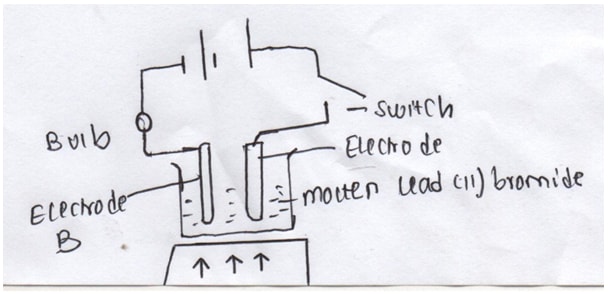 switch
Bulb
Electrode
molten lead (11) bromide
Electrode
B